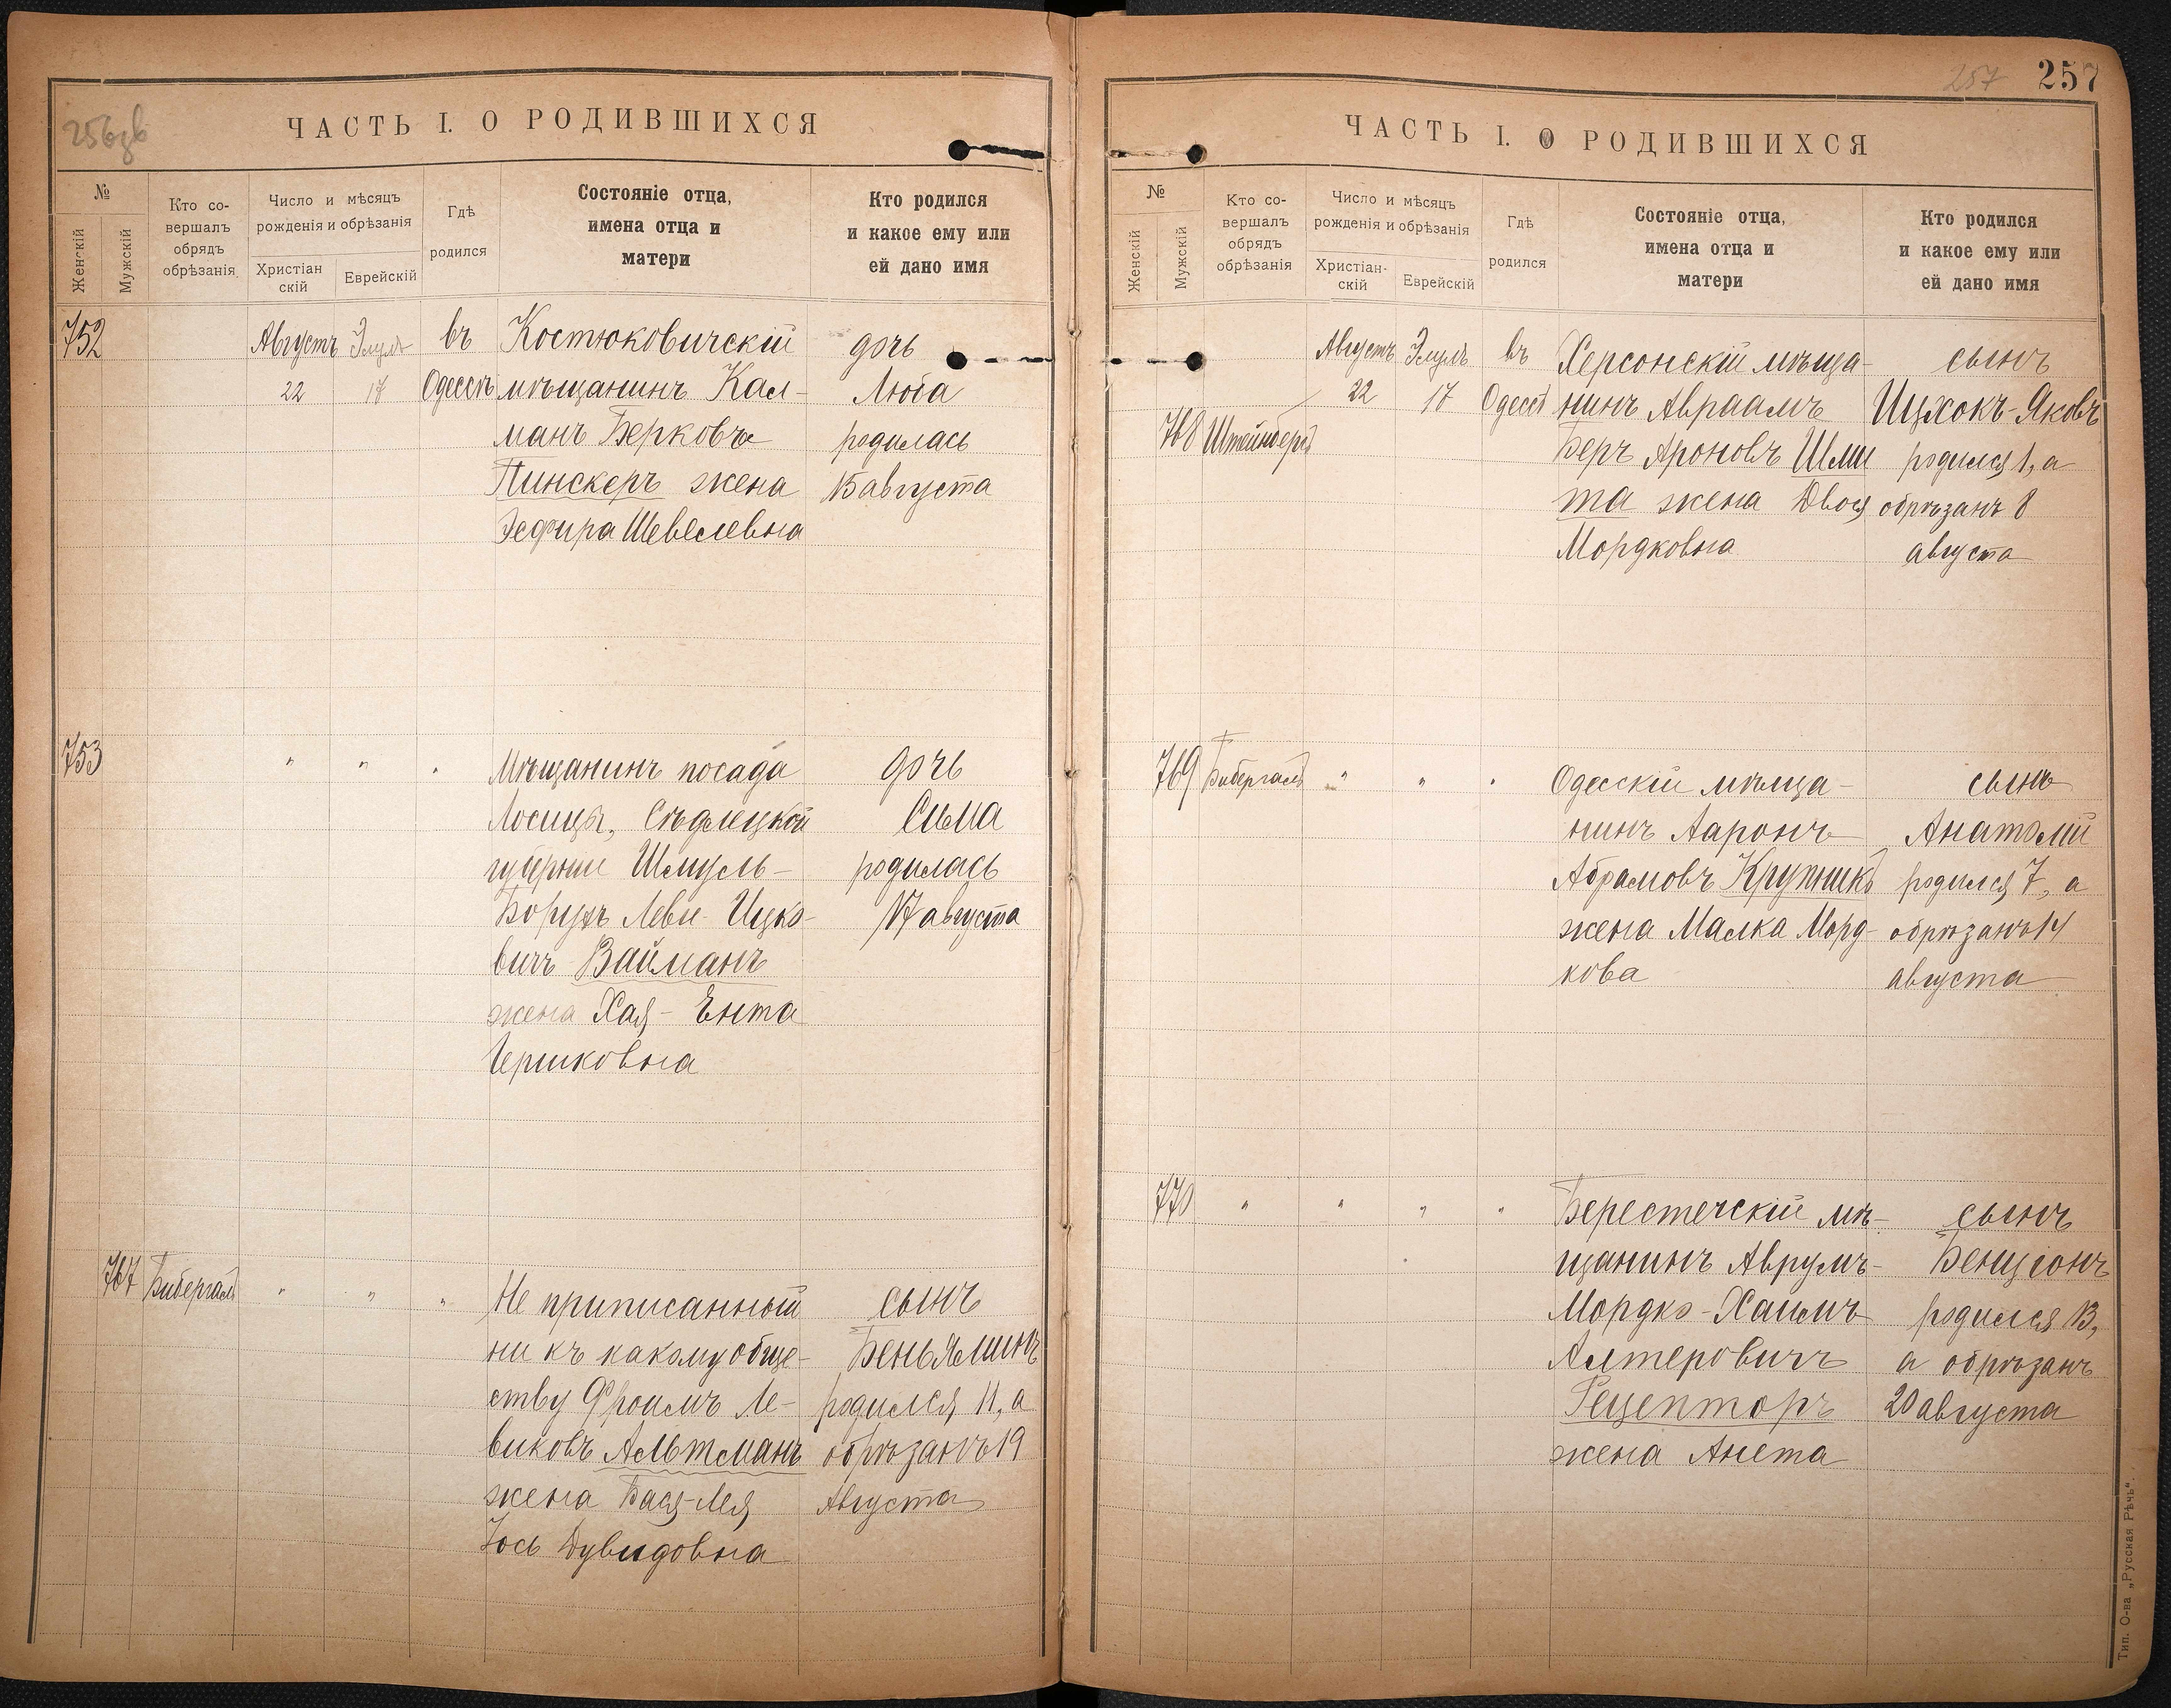 256зв
ЧАСТЬ I. О РОДИВШИХСЯ
№
Женскій
Мужскій
Кто со-
вершалъ
обрядъ
обрѣзанія
Число и мѣсяцъ
рожденія и обрѣзанія
Христіан
скій
Еврейскій
Гдѣ
родился
Состояніе отца,
имена отца и
матери
Кто родился
и какое ему или
ей дано имя
752
Августъ
22
Элулъ
17
въ
Одессѣ
Костюковичскій
мѣщанинъ Кал-
манъ Берковъ
Пинскеръ жена
Эсфира Шевелевна
дочь
Люба
родилась
15 августа
753
" " "
Мѣщанинъ посада
Лосицы, Сѣдлецкой
губерніи Шмуль-
Борухъ Леви-Ицко-
вичъ Вайманъ
жена Хая-Ента
Гершковна
дочь
Сима
родилась
17 августа
767
Бибергалъ
" " "
Не приписанный
ни къ какому обще-
ству Фроимъ Ле-
виковъ Альтманъ
жена Бася-Лея
Іось Дувидовна
сынъ
Беньяминъ
родился 11, а
обрѣзанъ 19
Августа
257
257
ЧАСТЬ I. О РОДИВШИХСЯ
№
Женскій
Мужскій
Кто со-
вершалъ
обрядъ
обрѣзанія
Число и мѣсяцъ
рожденія и обрѣзанія
Христіан-
скій
Еврейскій
Гдѣ
родился
Состояніе отца,
имена отца и
матери
Кто родился
и какое ему или
ей дано имя
768
Штейнбергъ
Августъ
22
Элулъ
17
въ
Одессѣ
Херсонскій мѣща-
нинъ Авраамъ
Беръ Ароновъ Шми
та жена Двося
Мордковна
сынъ
Ицхокъ-Яковъ
родился 1, а
обрѣзанъ 8
августа
769
Бибергалъ
" " "
Одесскій мѣща-
нинъ Ааронъ
Абрамовъ Крупникъ
жена Малка Морд-
кова
сынъ
Анатолій
родился 7, а
обрѣзанъ 14
августа
770
" " " "
Берестечскій мѣ-
щанинъ Аврумъ-
Мордко-Хаимъ
Алтеровичъ
Рецепторъ
жена Анета
сынъ
Бенціонъ
родился 13,
а обрѣзанъ
20 августа
Тип. О-ва „Русская Рѣчь“.